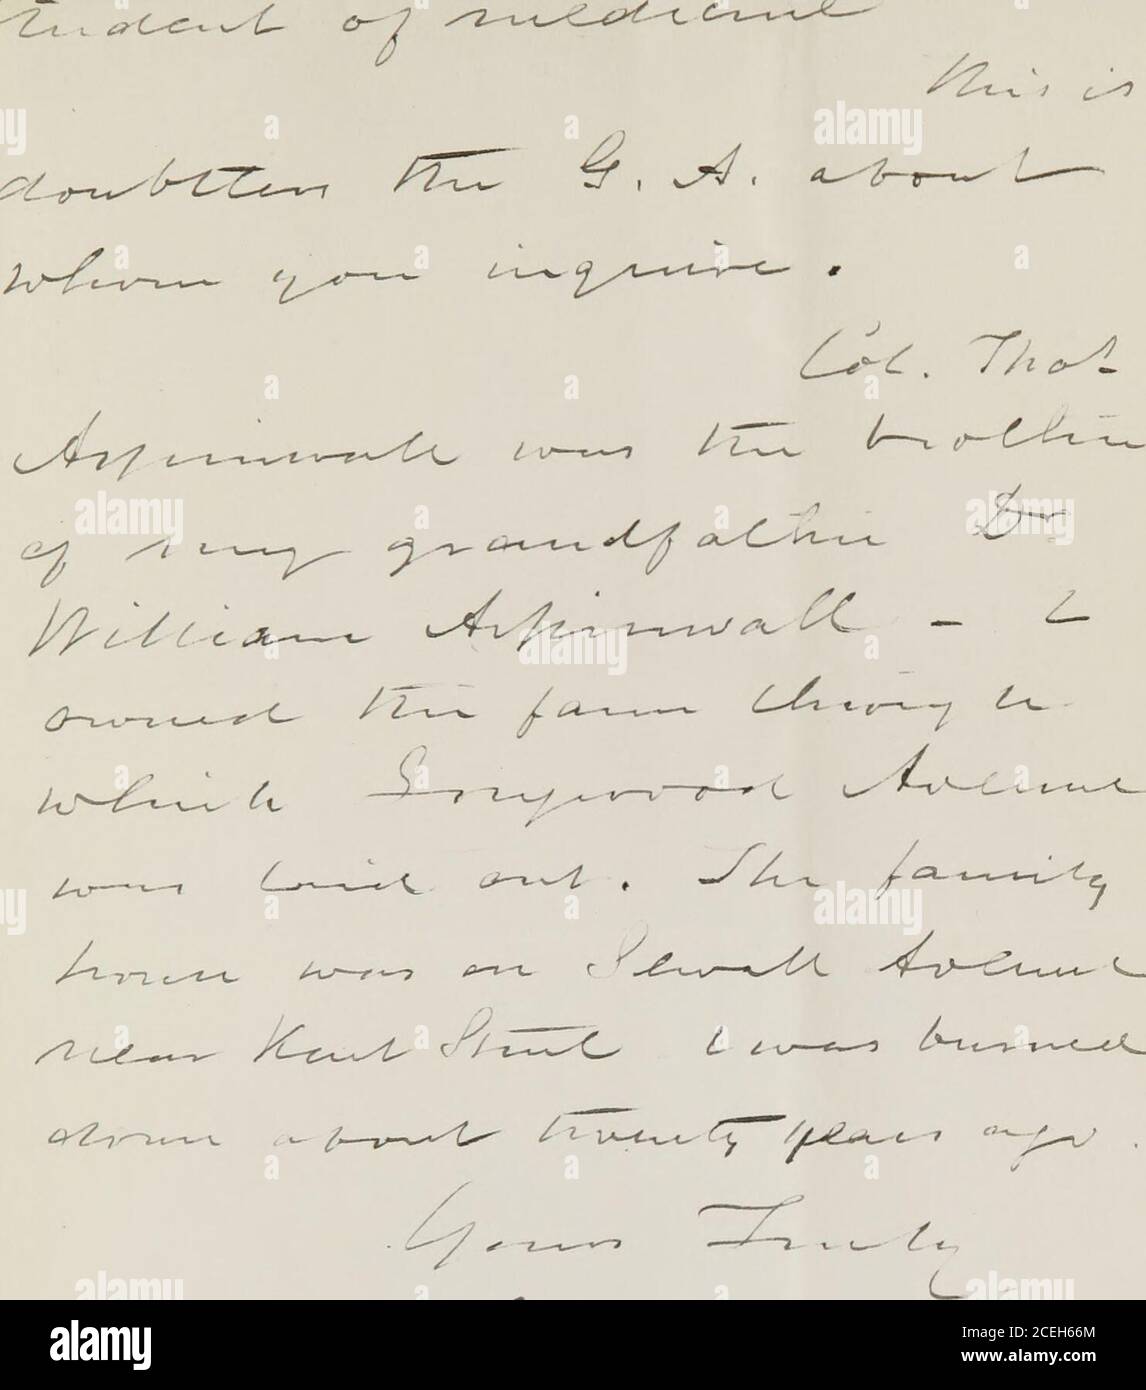 student of medicine
This is
doubtless the G. A. about
whom you inquire.
Col. Thos
Aspinwall was the brother
of my grandfather Dr
William Aspinwall - &
owned the farm through
which Longwood Avenue
was laid out. The family
house was on Sewall Avenue
near Kent Street & was burned
down about twenty years ago.
Yours Truly
alamy
Image ID: 2CEH66M
www.alamy.com